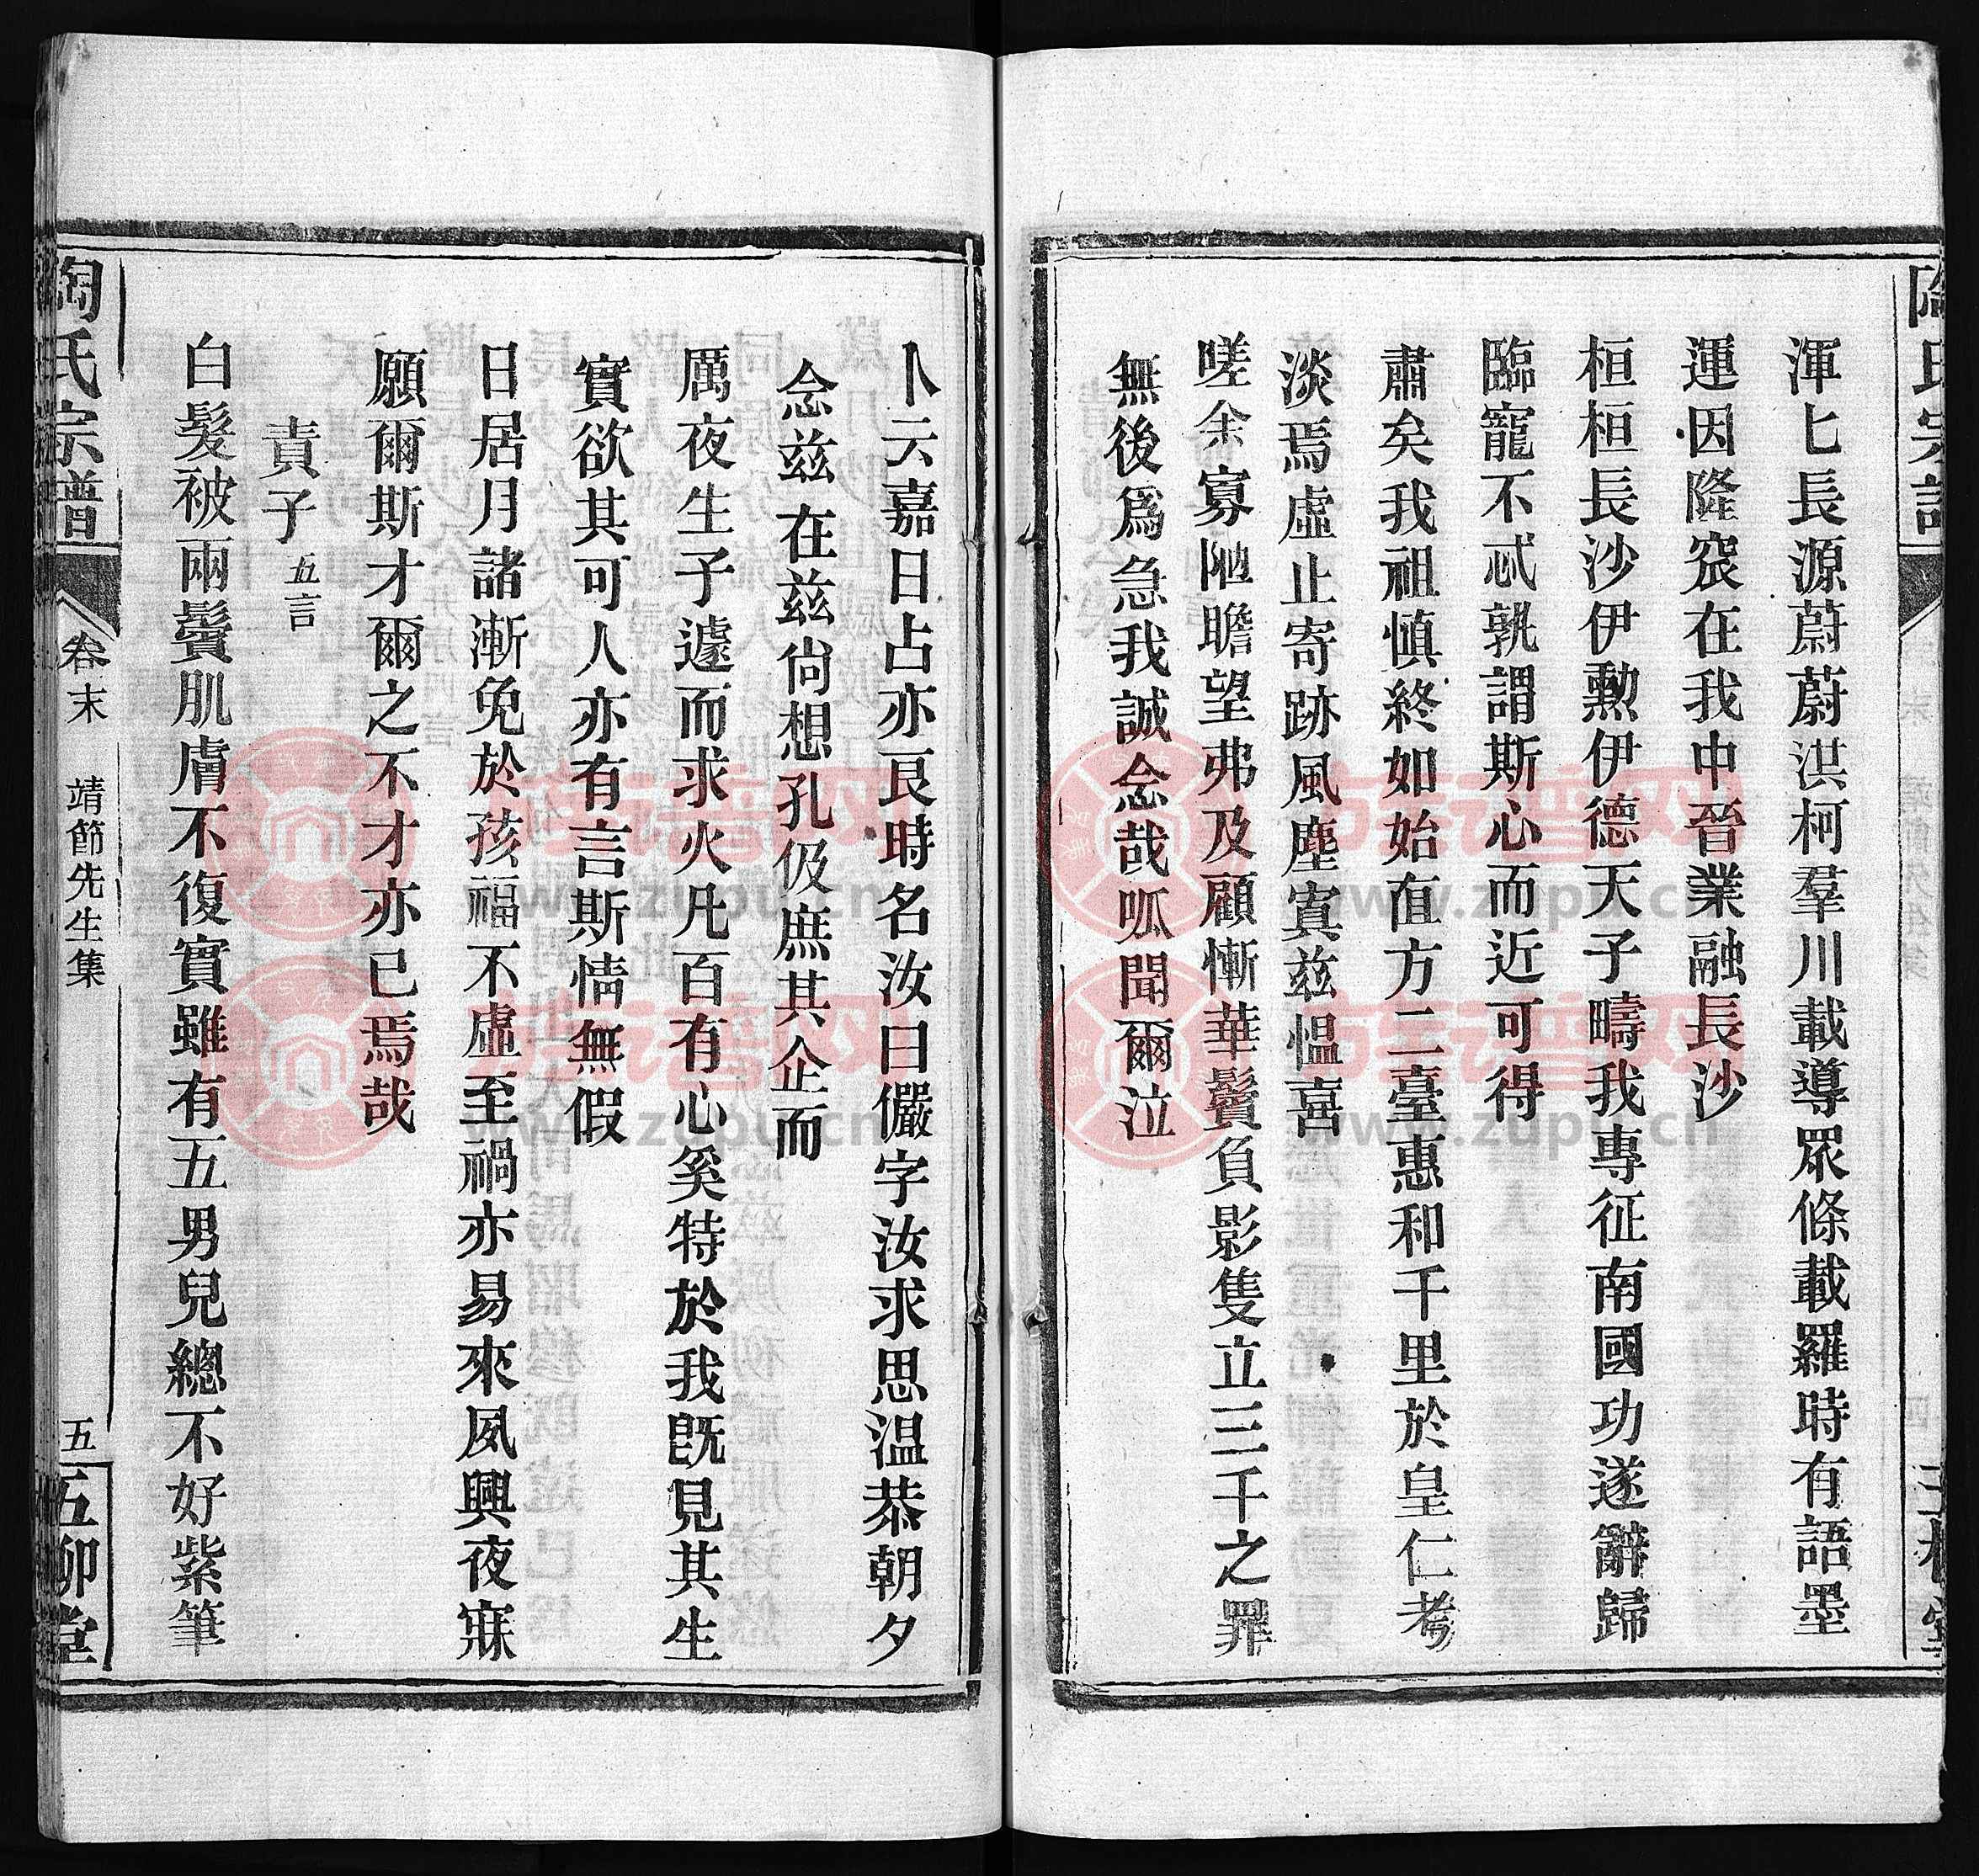 渾匕長源蔚蔚洪柯羣川載導眾條載羅時有語墨
運因隆窊在我中晉業融長沙
桓桓長沙伊勲伊德天子疇我專征南國功遂辭歸
臨寵不忒孰謂斯心而近可得
肅矣我祖慎終如始直方二臺惠和千里於皇仁考
淡焉虛止寄跡風塵寘兹慍喜
嗟余寡陋瞻望弗及顧慚華鬢負影隻立三千之罪
無後爲急我誠念哉呱聞爾泣
卜云嘉日占亦良時名汝曰儼字汝求思温恭朝夕
念兹在兹尙想孔伋庶其企而
厲夜生子遽而求火凡百有心奚特於我旣見其生
實欲其可人亦有言斯情無假
日居月諸漸免於孩福不虛至禍亦易來夙興夜寐
願爾斯才爾之不才亦已焉哉
責子 五言
白髮被兩鬢肌膚不復實雖有五男兒總不好紫筆
陶氏宗譜
卷末
靖節先生集
五
五柳堂
族谱网
www.zupu.cn
族谱网
www.zupu.cn
族谱网
www.zupu.cn
族谱网
www.zupu.cn